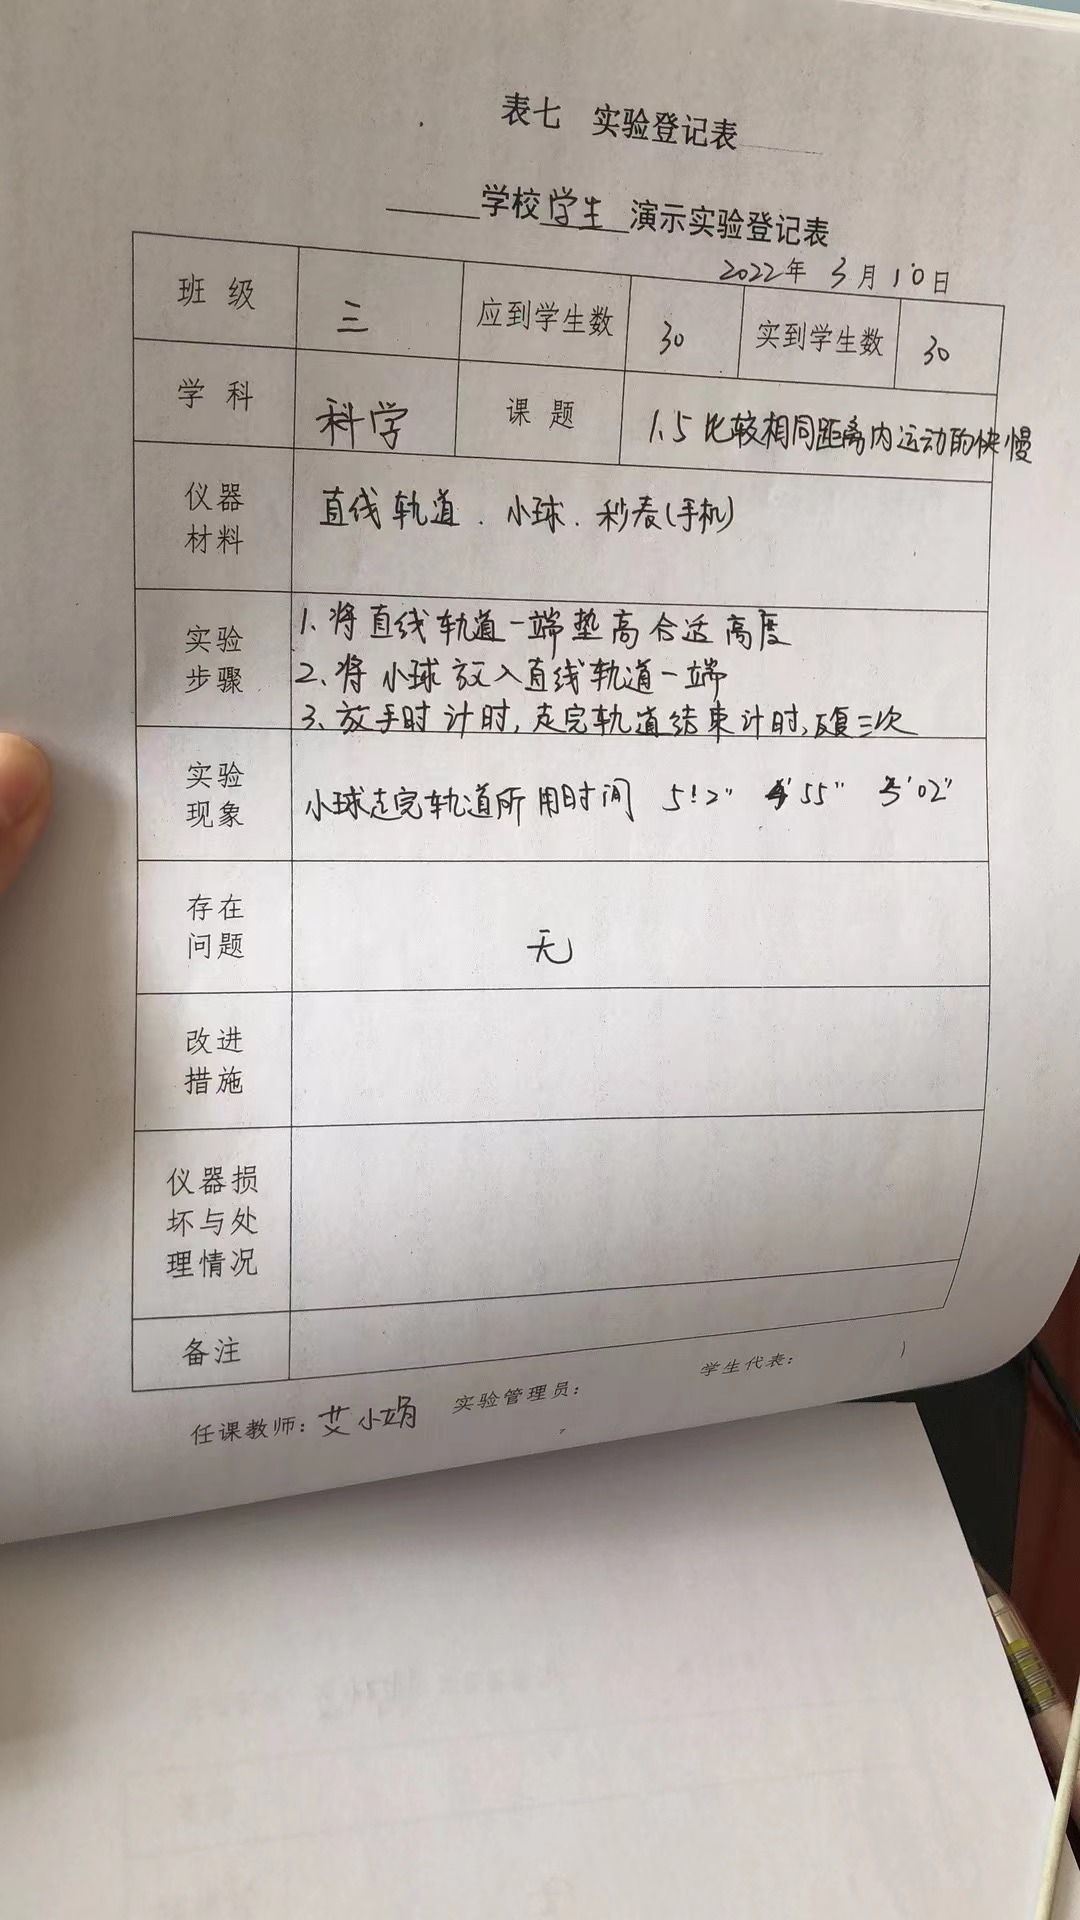 表七 实验登记表
学校学生 演示实验登记表
2022年 3月10日
班级 三 应到学生数 30 实到学生数 30
学科 科学 课题 1.5 比较相同距离内运动的快慢
仪器
材料
直线轨道、小球、秒表(手机)
实验
步骤
1、将直线轨道一端垫高合适高度
2、将小球放入直线轨道一端
3、放手时计时,走完轨道结束计时,反复三次
实验
现象
小球走完轨道所用时间 5'12" 4'55" 5'02"
存在
问题
无
改进
措施
仪器损
坏与处
理情况
备注
任课教师:艾小娟 实验管理员: 学生代表: